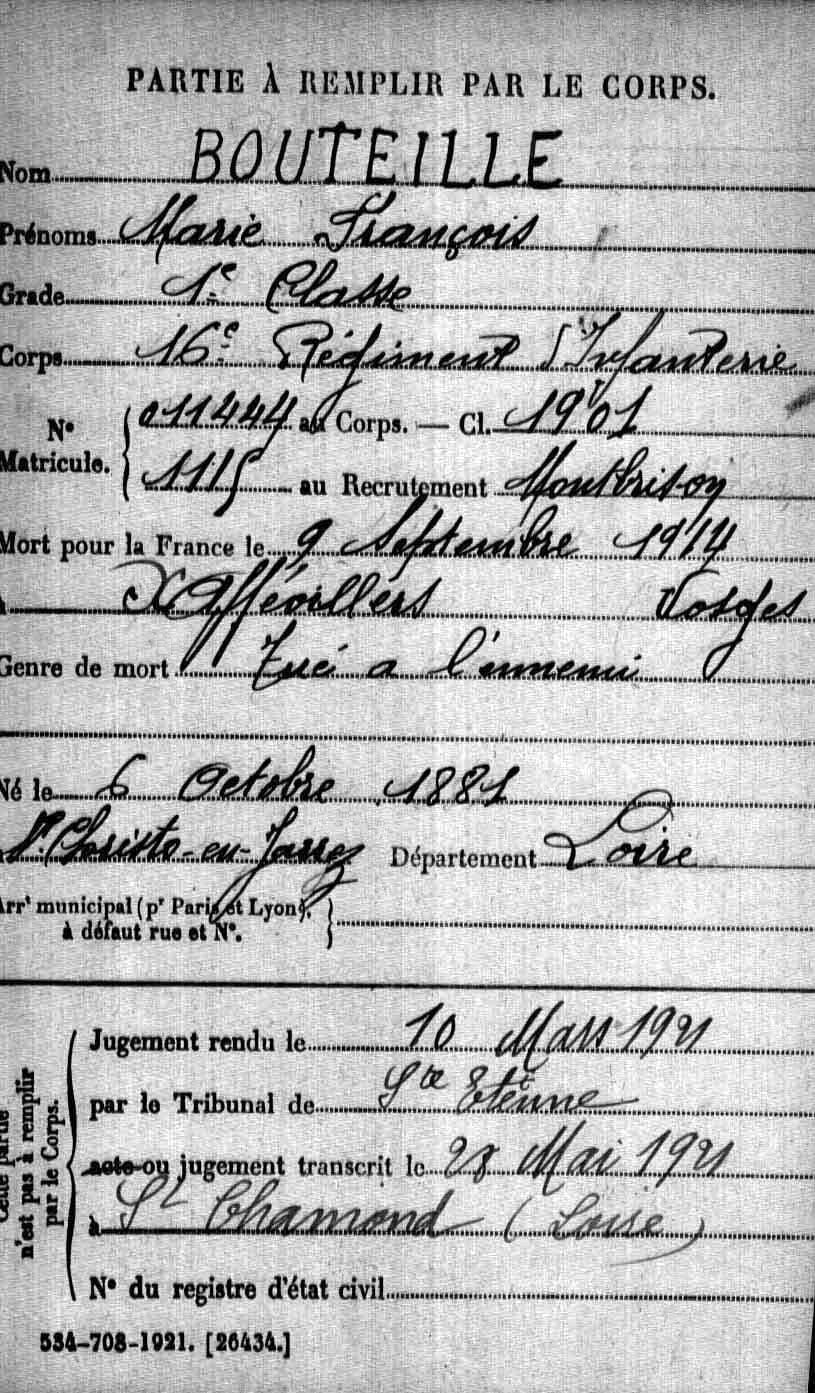 PARTIE À REMPLIR PAR LE CORPS.
Nom BOUTEILLE
Prénoms Marie François
Grade 1e Classe
Corps 16e Régiment d'Infanterie
No Matricule. { 011444 au Corps. — Cl. 1901
1115 au Recrutement Montbrison
Mort pour la France le 9 Septembre 1914
à Xaffévillers Vosges
Genre de mort Tué a l'ennemi
Né le 6 Octobre 1881
à St Christo-en-Jarrez Département Loire
Arrt municipal (pr Paris et Lyon),
à défaut rue et No.
Cette partie
n'est pas à remplir
par le Corps.
Jugement rendu le 10 Mars 1921
par le Tribunal de Ste Etienne
acte ou jugement transcrit le 28 Mai 1921
à St Chamond (Loire)
No du registre d'état civil
534-708-1921. [26434.]